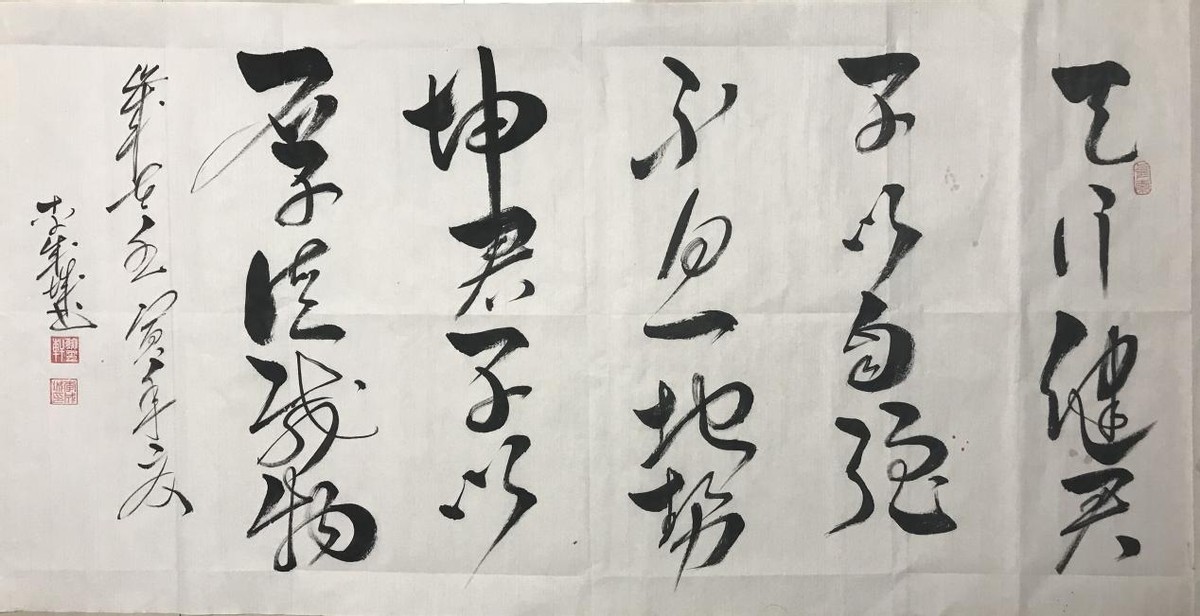 天行健君
子以自强
不息地势
坤君子以
厚德载物
壬寅年夏
李成城书